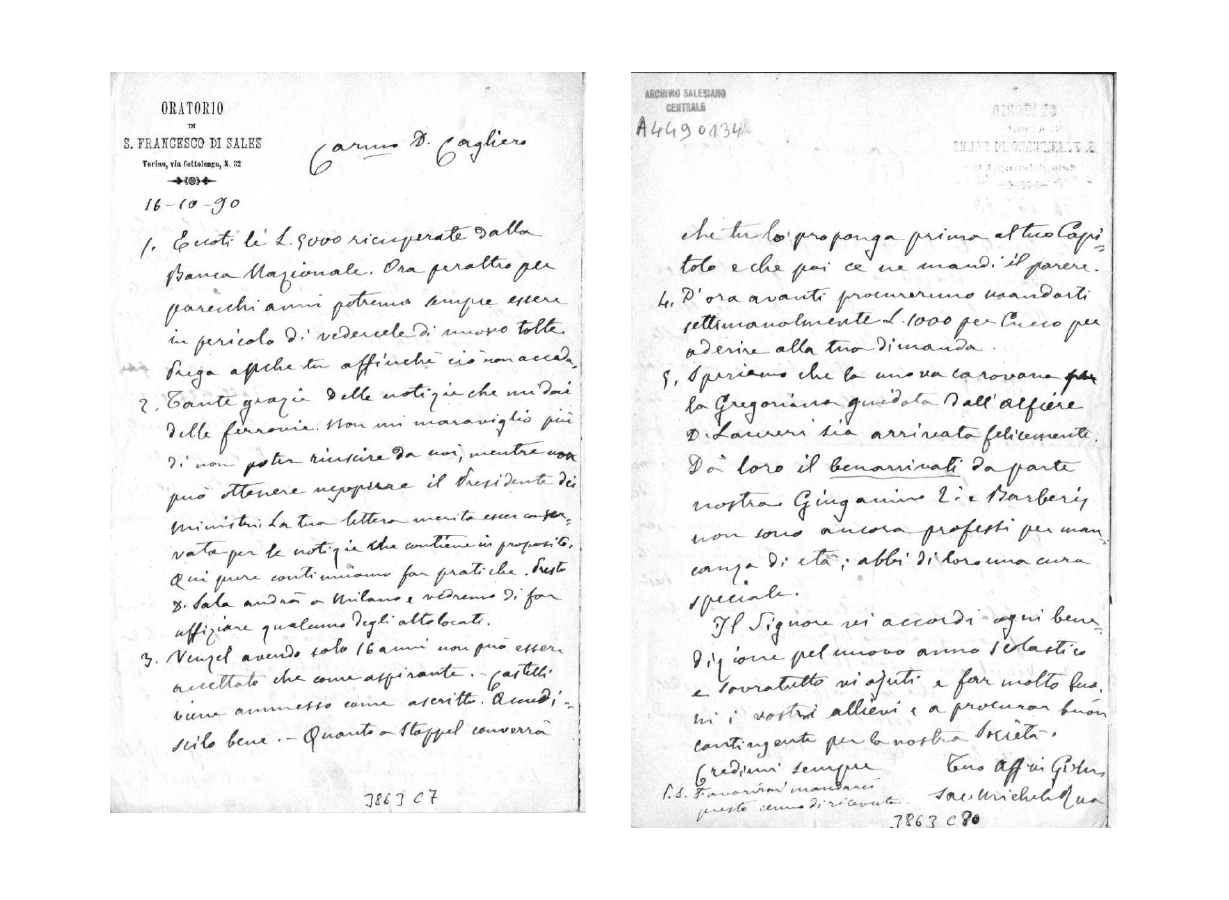 ORATORIO
DI
S. FRANCESCO DI SALES
Torino, via Cottolengo, N. 32
Carmo D. Cagliero
16-10-90
1. Eccoti le L. 5000 ricuperate dalla
Banca Nazionale. Ora peraltro per
parecchi anni potremo sempre essere
in pericolo di vedercele di nuovo tolte.
Prega anche tu affinchè ciò non accada.
2. Tante grazie delle notizie che mi dai
delle ferrovie. Non mi maraviglio più
di non poter riuscire da noi, mentre non
può ottenere neppure il Presidente dei
Ministri. La tua lettera merita esser conser=
vata per le notizie che contiene in proposito.
Qui pure continuiamo far pratiche. Presto
D. Sala andrà a Milano e vedremo di far
uffiziare qualcuno degli altolocati.
3. Venzel avendo solo 16 anni non può essere
accettato che come aspirante. - Castelli
viene ammesso come ascritto. Custodi=
scilo bene. - Quanto a Stoppel converrà
3863 C7
ARCHIVIO SALESIANO
CENTRALE
A4490134
che tu lo proponga prima al tuo Capi=
tolo e che poi ce ne mandi il parere.
4. D'ora avanti procureremo mandarti
settimanalmente L. 1000 per Cuneo per
aderire alla tua dimanda.
5. Speriamo che la nuova carovana
la Gregoriana guidata dall'alfiere
D. Laureri sia arrivata felicemente.
Dà loro il benarrivati da parte
nostra. Giuganino 2° e Barberis
non sono ancora professi per man=
canza di età; abbi di loro una cura
speciale.
Il Signore vi accordi ogni bene=
dizione pel nuovo anno scolastico
e sovratutto vi ajuti a far molto buo=
ni i vostri allievi e a procurar buon
contingente per la nostra Società.
Credimi sempre
Tuo Aff in G.
Sac. Michele Rua
P.S. Favorirai mandarci
questo cenno di ricevuta.
3863 C80